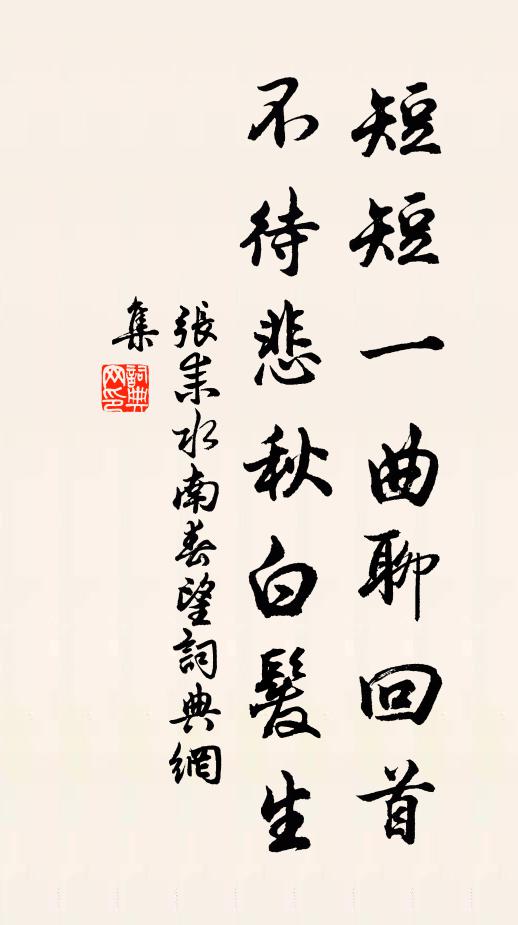 短短一曲聊回首
不待悲秋白髮生
張耒水南春望詞典網
集
詞典
网印